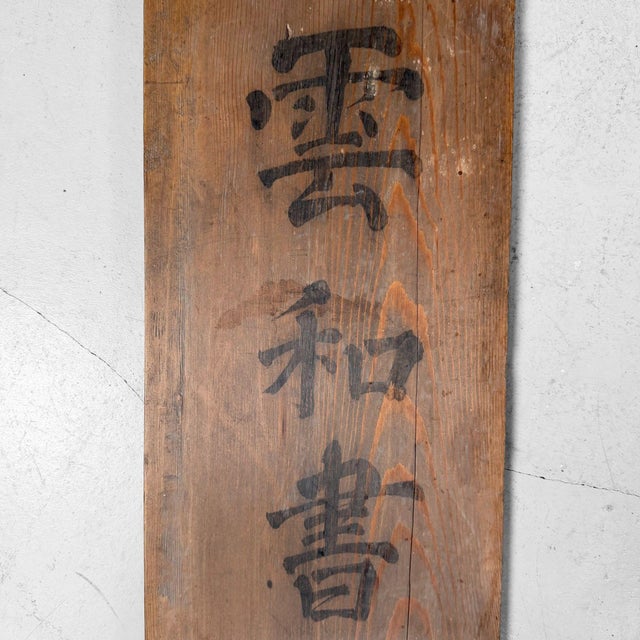 雲和書